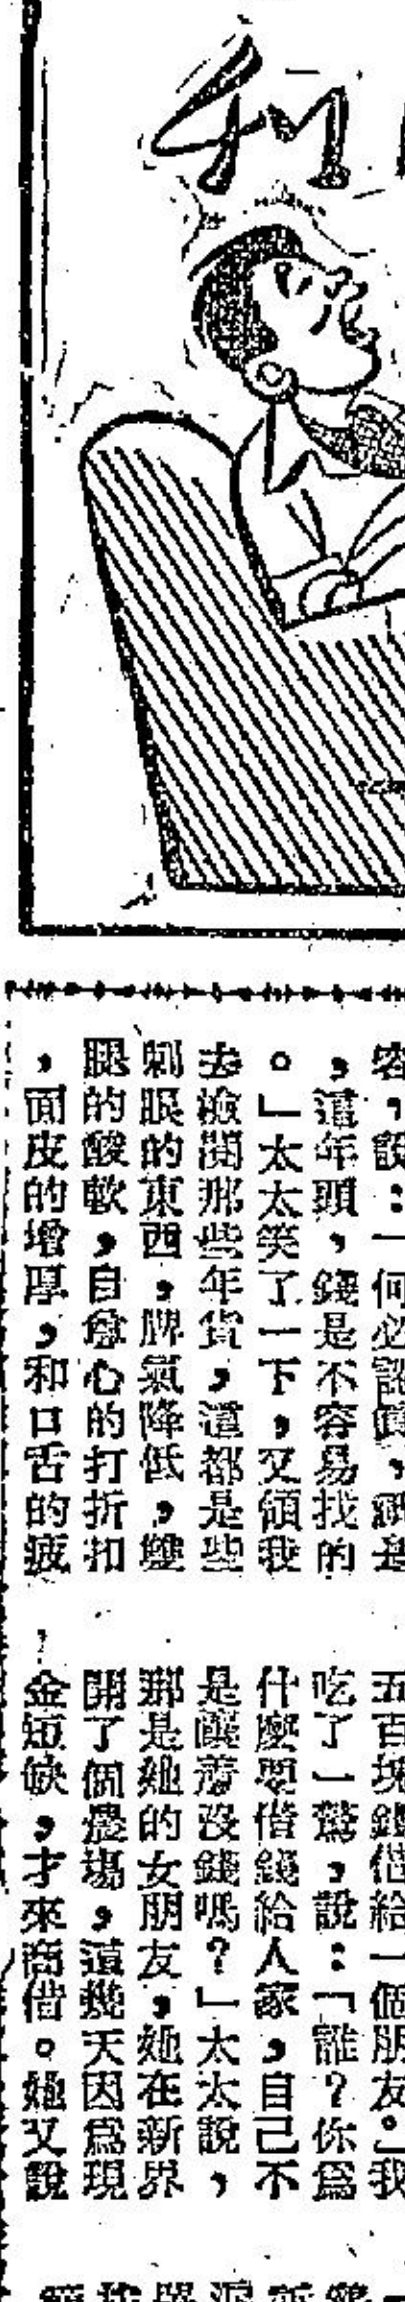 利
容，說：「何必認真，就是
，這年頭，錢是不容易找的
。」太太笑了一下，又領我
去檢閱那些年貨，這都是些
刺眼的東西，脾氣降低，雙
腿的酸軟，自尊心的打折扣
，面皮的增厚，和口舌的疲
五百塊錢借給一個朋友。」我
吃了一驚，說：「誰？你爲
什麼要借錢給人家，自己不
是嚷着沒錢嗎？」太太說，
那是她的女朋友，她在新界
開了個農塲，這幾天因爲現
金短缺，才來商借。她又說